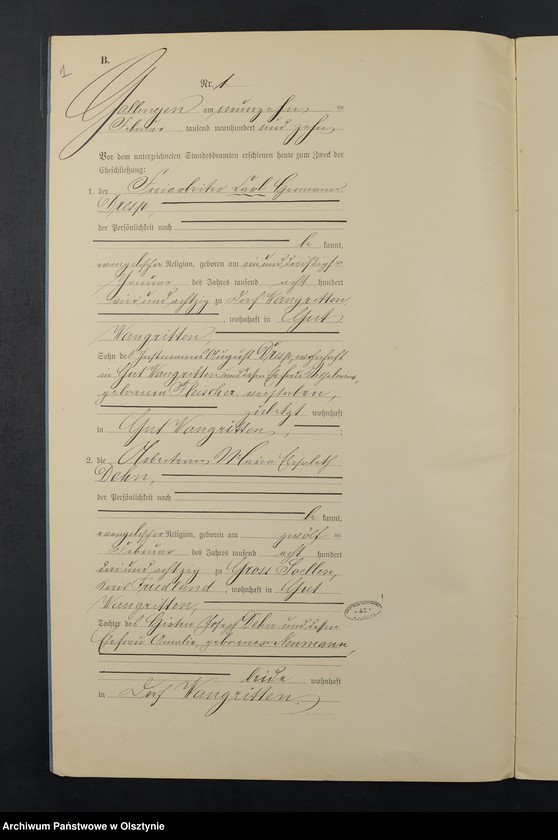 1
B.
Nr. 1
Gallingen am neunzehnten
Februar tausend neunhundert und zehn
Vor dem unterzeichneten Standesbeamten erschienen heute zum Zweck der
Eheschließung:
1. der Instarbeiter Carl Hermann
Dresp,
der Persönlichkeit nach
be kannt,
evangelischer Religion, geboren am einunddreißigsten
Januar des Jahres tausend acht hundert
vier und achtzig zu Dorf Wangritten
, wohnhaft in Gut
Wangritten,
Sohn des Instmanns August Dresp, wohnhaft
in Gut Wangritten und dessen Ehefrau Wilhelmine,
geborenen Fleischer verstorben,
zuletzt wohnhaft
in Gut Wangritten, ;
2. die Arbeiterin Maria Elisabeth
Dehn,
der Persönlichkeit nach
be kannt,
evangelischer Religion, geboren am zwölften
Februar des Jahres tausend acht hundert
drei und achtzig zu Gross Saollen,
Kreis Friedland, wohnhaft in Gut
Wangritten,
Tochter des Hirten Joseph Dehn und dessen
Ehefrau Amalie, geborener Neumann,
beide wohnhaft
in Dorf Wangritten.
Archiwum Państwowe w Olsztynie